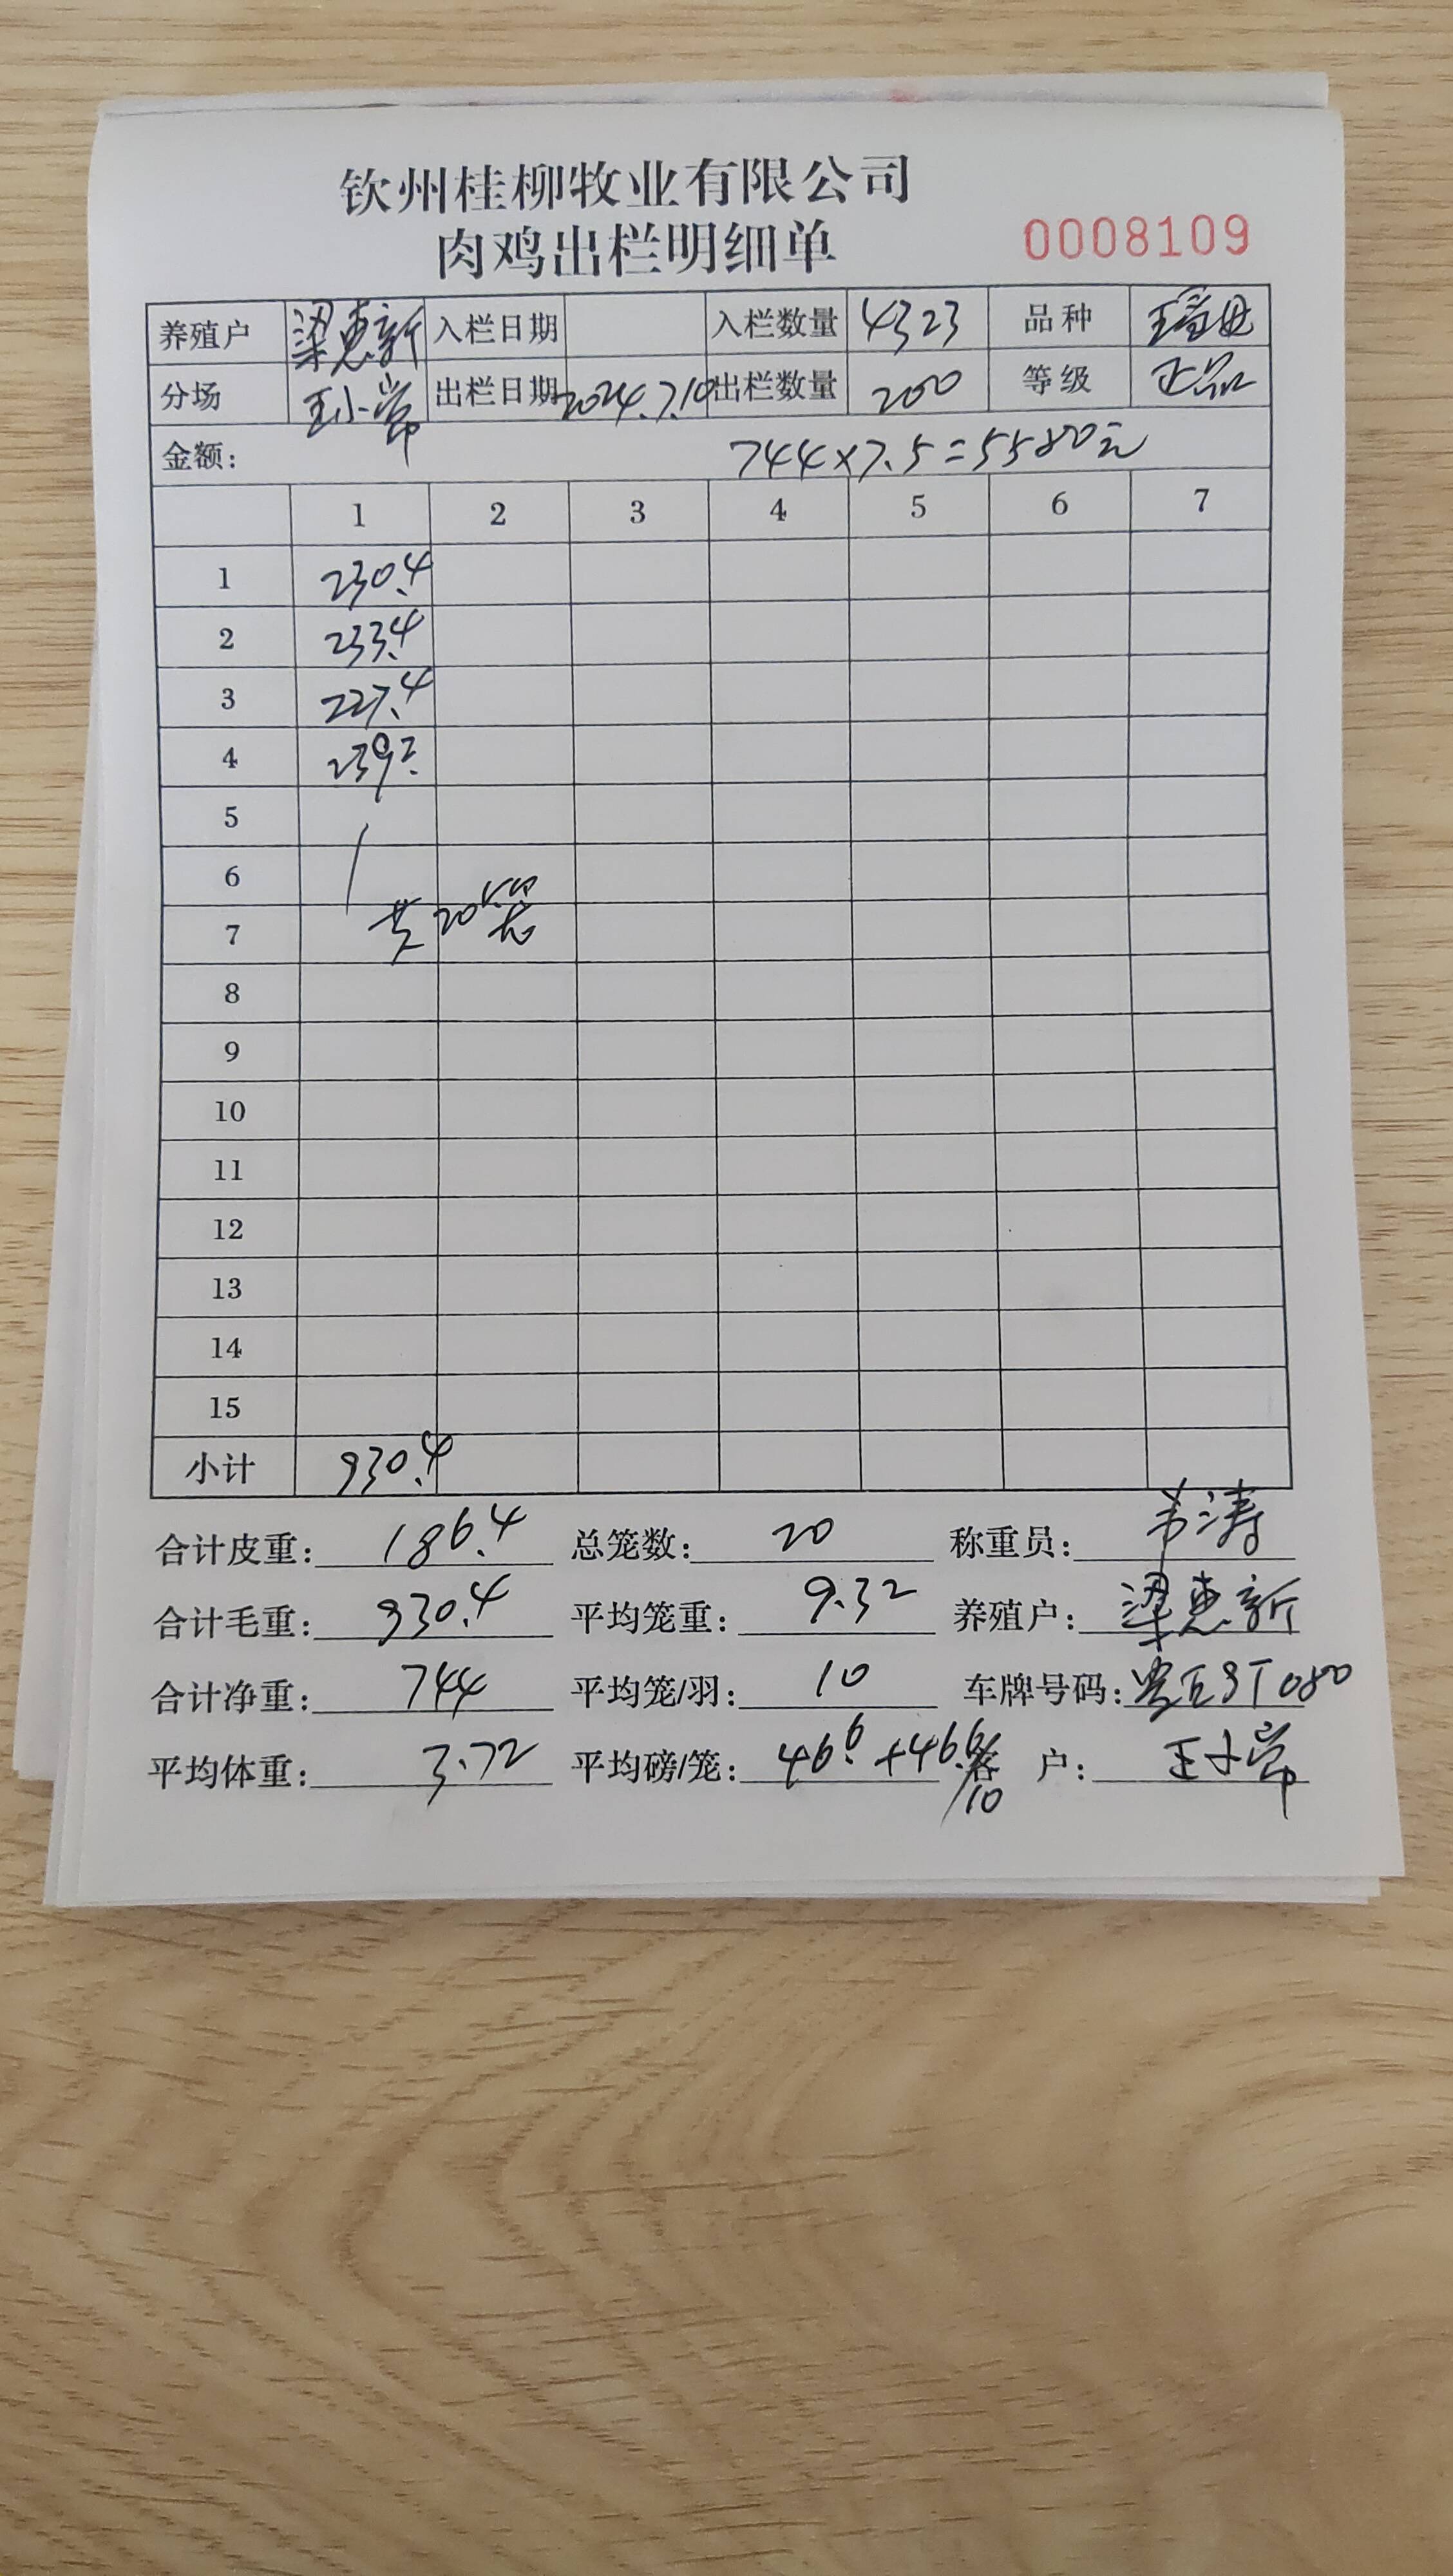 钦州桂柳牧业有限公司
肉鸡出栏明细单
0008109
养殖户 梁惠新 入栏日期 入栏数量 4323 品种
分场 王小常 出栏日期 2024.7.10 出栏数量 200 等级 正品
金额: 744×7.5=5580元
1 2 3 4 5 6 7
1 230.4
2 233.4
3 227.4
4 239.2
5
6
7 共20
8
9
10
11
12
13
14
15
小计 930.4
合计皮重: 186.4 总笼数: 20 称重员: 韦涛
合计毛重: 930.4 平均笼重: 9.32 养殖户: 梁惠新
合计净重: 744 平均笼/羽: 10 车牌号码:
平均体重: 3.72 平均磅/笼: 46.6+46.6/10 客 户: 王小常